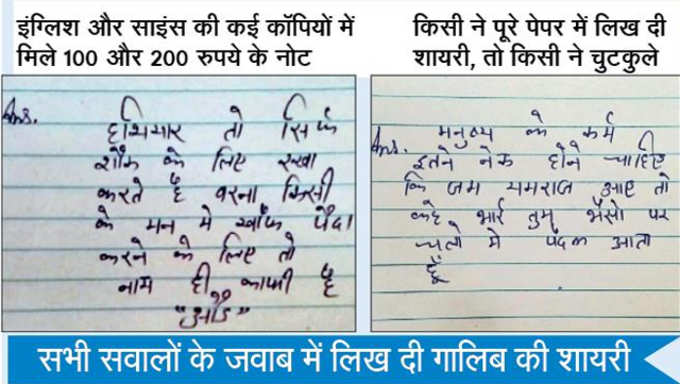 इंग्लिश और साइंस की कई कॉपियों में
मिले 100 और 200 रुपये के नोट
किसी ने पूरे पेपर में लिख दी
शायरी, तो किसी ने चुटकुले
Ans.
हथियार तो सिर्फ
शौक के लिए रखा
करते है वरना किसी
के मन मे खौफ पैदा
करने के लिए तो
नाम ही काफी है
Ans.
मनुष्य के कर्म
इतने नेक होने चाहिए
कि जम यमराज आए तो
कहे भाई तुम भैंसो पर
चलो मे पैदल आता
हूँ
सभी सवालों के जवाब में लिख दी गालिब की शायरी